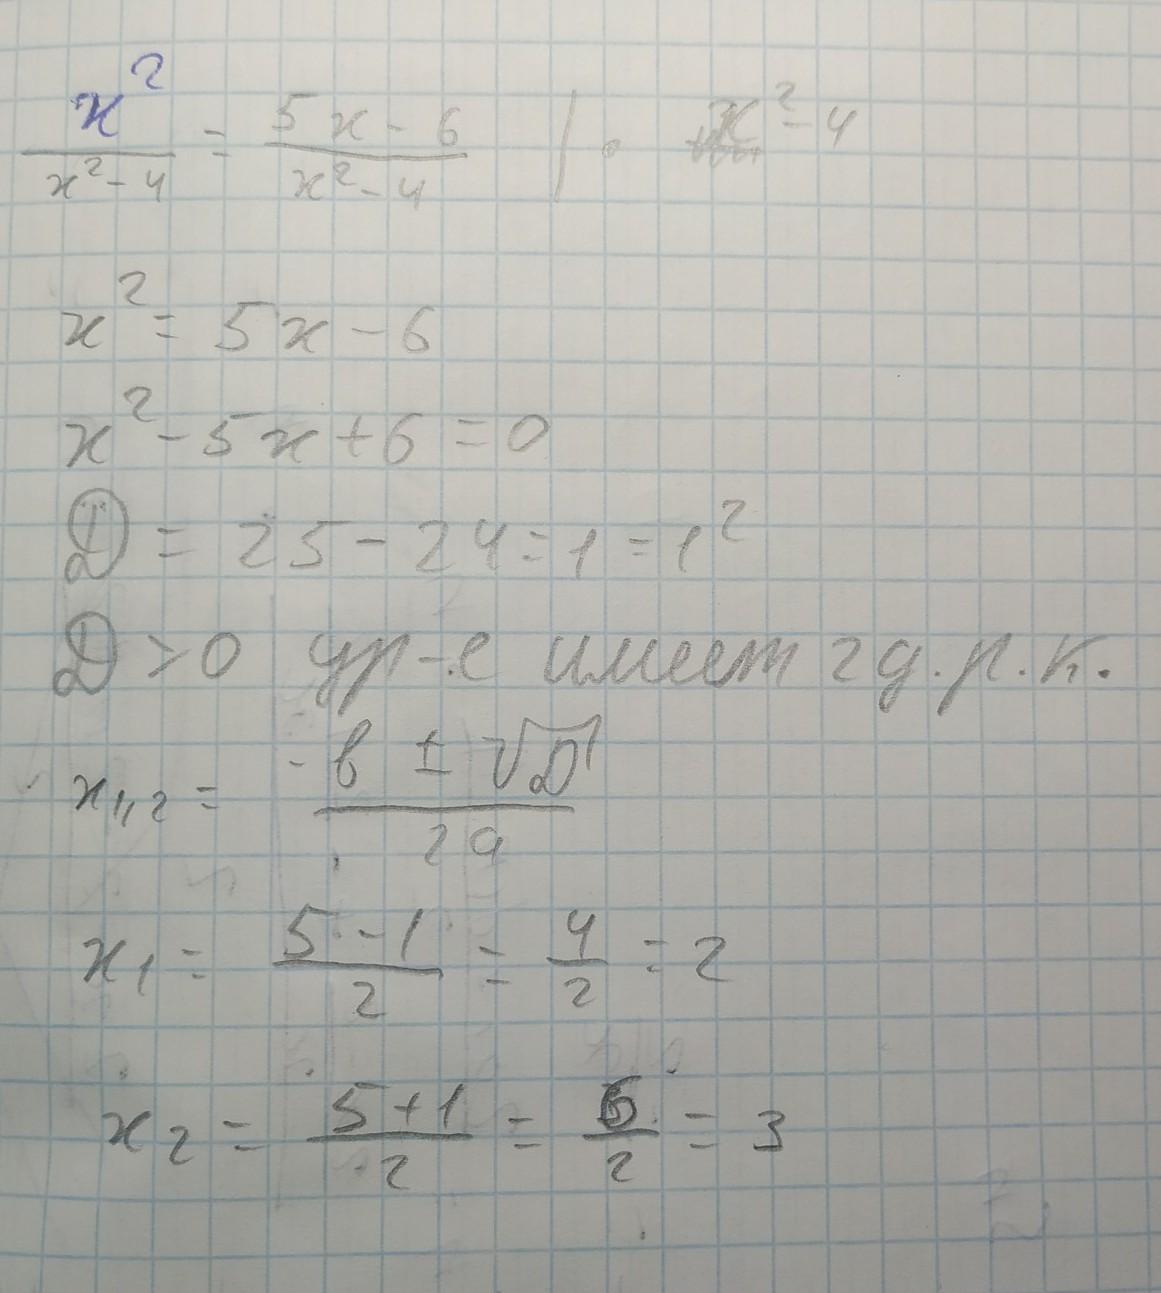 x²/(x²-4) = (5x-6)/(x²-4) | · x²-4
x² = 5x-6
x²-5x+6=0
D = 25-24=1=1²
D>0 ур-е имеет 2 д.р.к.
x₁,₂ = (-b ± √D)/2a
x₁ = (5-1)/2 = 4/2 = 2
x₂ = (5+1)/2 = 6/2 = 3